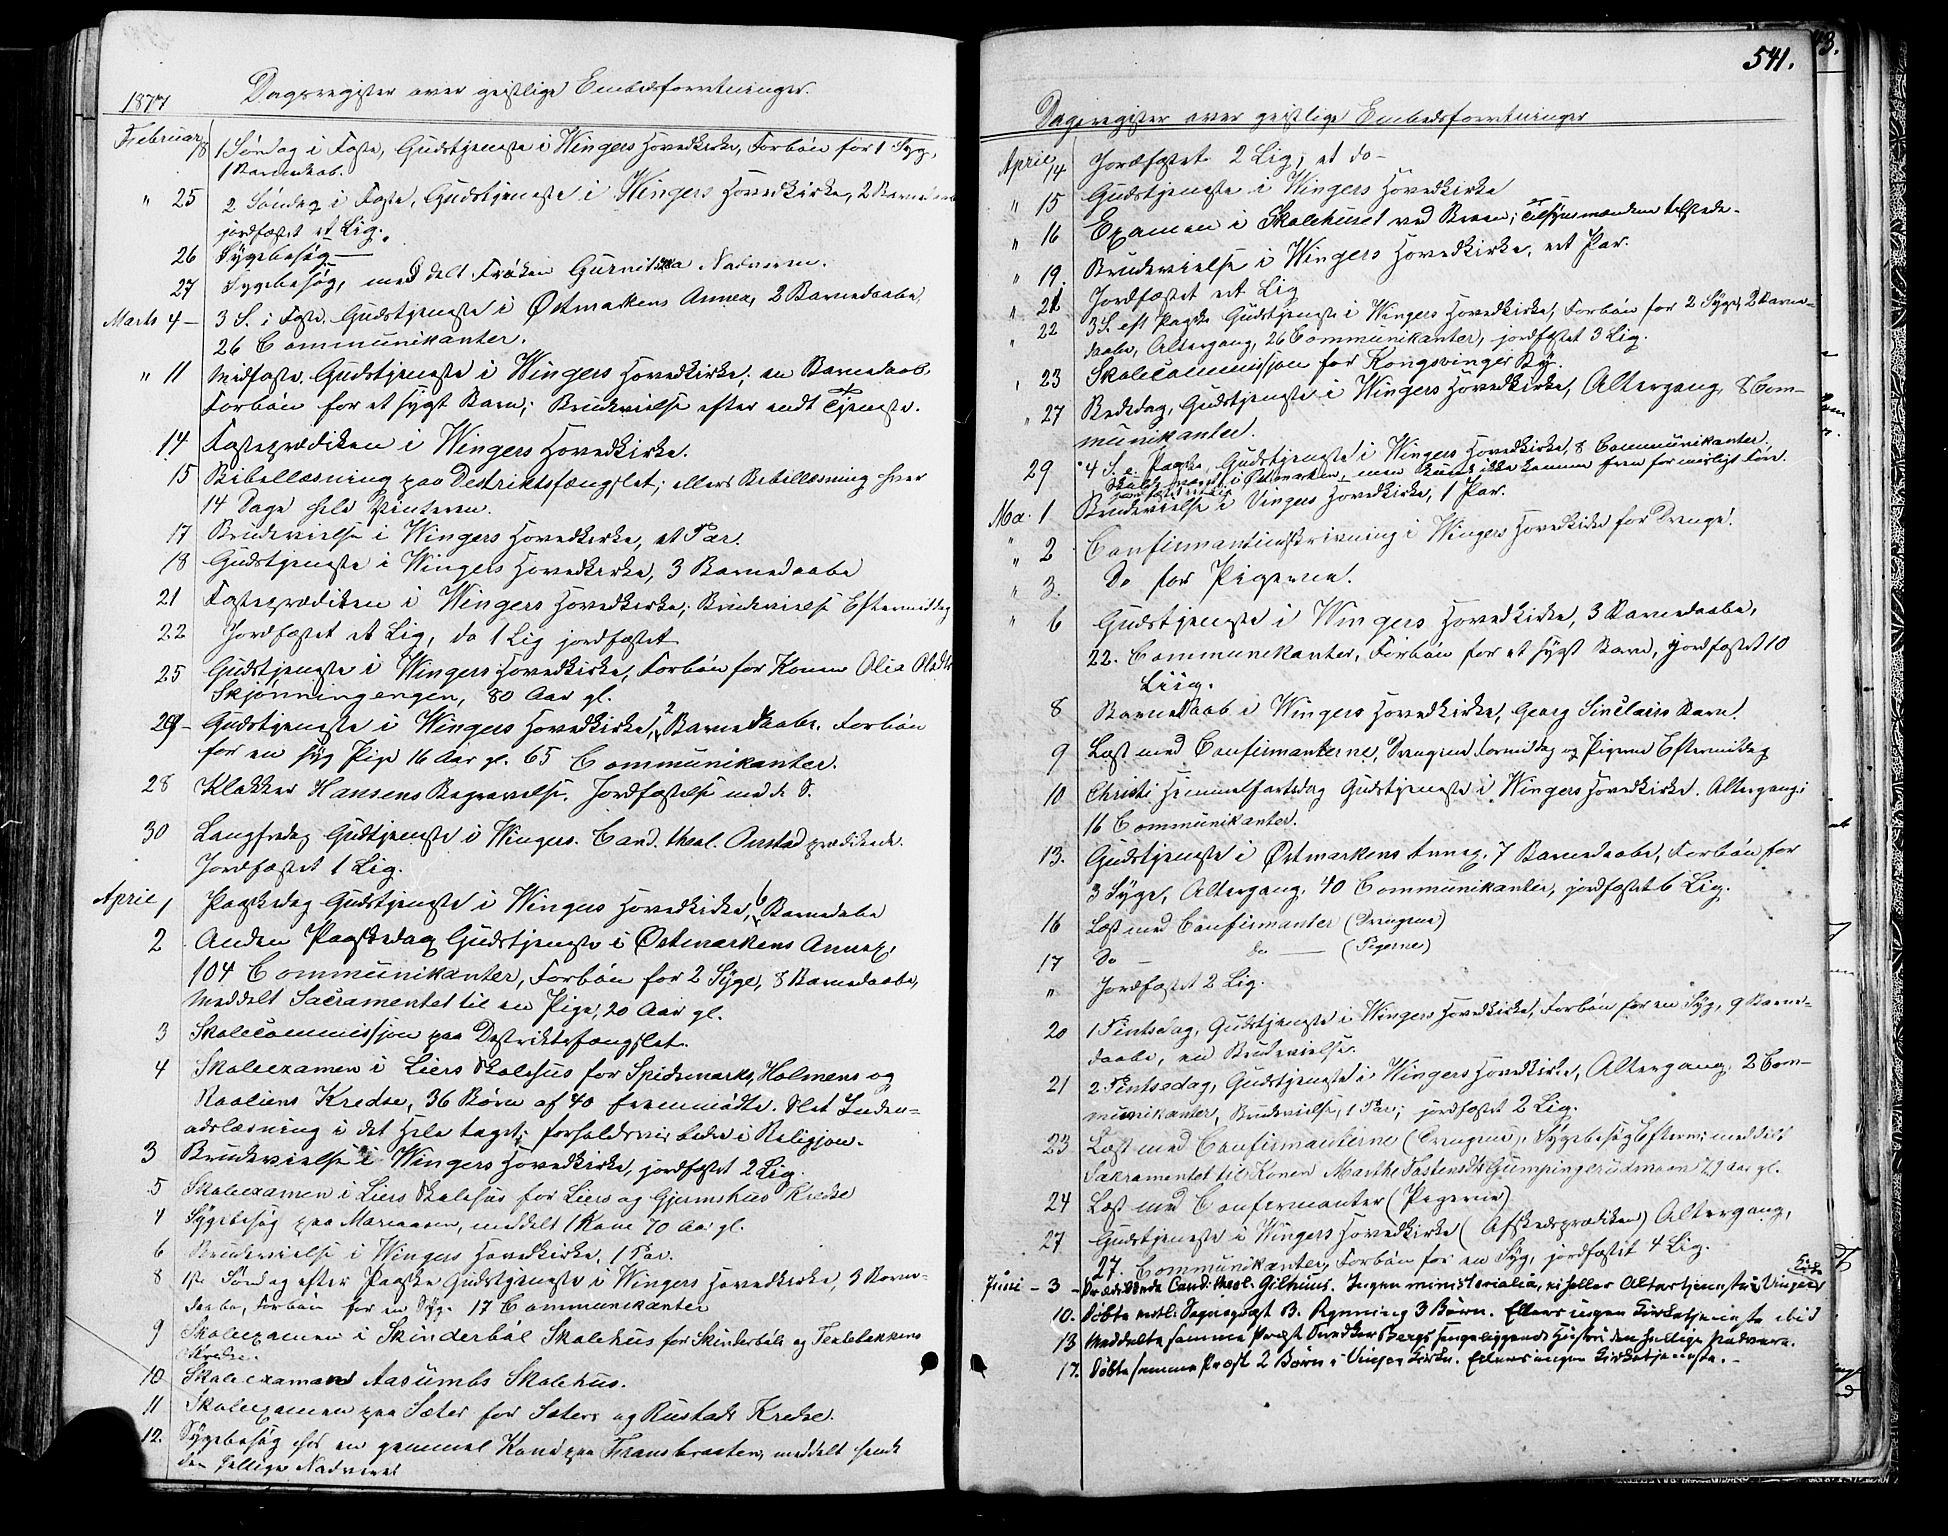 1877
Dagsregister over geistlige Embedsforretninger.
Februar 18 1 Søndag i Faste, Gudstjeneste i Wingers Hovedkirke, Forbøn for 1 Syg,
1 Barnedaab.
" 25 2 Søndag i Faste, Gudstjeneste i Wingers Hovedkirke, 2 Barnedaab
jordfæstet et Lig.
26 Sygebesøg —
27 Sygebesøg, meddelt Frøken Nadveren.
Marts 4 — 3 S. i Faste. Gudstjeneste i Østmarkens Annex, 2 Barnedaabe,
26 Communikanter.
" 11 Midfaste. Gudstjeneste i Wingers Hovedkirke; en Barnedaab
Forbøn for et sygt Barn; Brudevielse efter endt Tjeneste.
14 Fasteprædiken i Wingers Hovedkirke.
15 Bibellæsning paa Destriktsfængslet; ellers Bibellæsning hver
14 Dage hele Vinteren.
17 Brudevielse i Wingers Hovedkirke, et Par.
18 Gudstjeneste i Wingers Hovedkirke, 3 Barnedaabe
21 Fasteprædiken i Wingers Hovedkirke; Brudevielse Eftermiddag
22 Jordfæstet et Lig, do 1 Lig jordfæstet
25 Gudstjeneste i Wingers Hovedkirke, Forbøn for Konen Olia
Skjønningengen, 80 Aar gl.
29 — Gudstjeneste i Wingers Hovedkirke, 2 Barnedaabe. Forbøn
for en syg Pige 16 Aar gl. 65 Communikanter.
28 Klokker Hansens Begravelse. Jordfæstelse med d. S.
30 Langfredag Gudtjeneste i Wingers. Cand. theol. prædikede.
Jordfæstet 1 Lig.
April 1 Paaskedag Gudstjeneste i Wingers Hovedkirke, 6 Barnedabe
2 Anden Paaskedag Gudstjeneste i Østmarkens Annex,
104 Communikanter, Forbøn for 2 Syge, 8 Barnedaabe,
Meddelt Sacramentet til en Pige, 20 Aar gl.
3 Skolecommission paa Destriktsfængslet.
4 Skoleexamen i Liers Skolehus for Spidsmarks, Holmens og
Kredse, 36 Børn af 40 fremmødte. Slet Inden-
adslæsning i det Hele taget; forholdsvis bedre i Religion.
3 Brudevielse i Wingers Hovedkirke, jordfæstet 2 Lig.
5 Skoleexamen i Liers Skolehus for Liers og Gjemshus Kredse
4 Sygebesøg paa meddelt 1 Kone 70 Aar gl.
6 Brudevielse i Wingers Hovedkirke, 1 Par.
8 1ste Søndag efter Paaske Gudstjeneste i Wingers Hovedkirke, 3 Barne-
daabe, Forbøn for en Syg. 17 Communikanter
9 Skoleexamen i Skinderbøl Skolehus for Skinderbøls og
Kredse.
10 Skoleexamen Aasumbs Skolehus.
11 Skoleexamen paa Sæter for Sæters og Rustads Kredse.
12. Sygebesøg hos en gammel Kone paa meddelt hende
den hellige Nadveret
541.
Dagsregister over geistlige Embedsforretninger
April 14 Jordfæstet 2 Lig, et do —
" 15 Gudstjeneste i Wingers Hovedkirke
" 16 Examen i Skolehuset ved Broen; Tilsynsmændene tilstede.
" 19. Brudevielse i Wingers Hovedkirke, et Par.
" 21 Jordfæstet et Lig
" 22 3 S. eft Paaske Gudstjeneste i Wingers Hovedkirke, Forbøn for 2 Syge, 2 Barne-
daabe, Altergang, 26 Communikanter, jordfæstet 3 Lig.
" 23 Skolecommission for Kongsvinger By.
" 27 Bededag, Gudstjeneste i Wingers Hovedkirke, Altergang, 8 Com-
munikanter.
29 4 S. e. Paaske Gudstjeneste i Wingers Hovedkirke, 8 Communikanter.
Skulde været i Østmarken, men kunde ikke komme frem for daarligt Føre.
Mai 1 Brudevielse i Vingers Hovedkirke, 1 Par.
" 2 Confirmantindskrivning i Wingers Hovedkirke for Drenge.
" 3. Do for Pigerne.
" 6 Gudstjeneste i Wingers Hovedkirke, 3 Barnedaabe,
22. Communikanter, Forbøn for et sygt Barn, jordfæstet 10
Liig.
8 Barnedaab i Wingers Hovedkirke, Georg Sinclairs Barn.
9 Læst med Confirmanterne, Drengene Formiddag og Pigerne Eftermiddag
10 Christi Himmelfartsdag Gudstjeneste i Wingers Hovedkirke. Altergang;
16 Communikanter.
13. Gudstjeneste i Østmarkens Annex, 7 Barnedaabe, Forbøn for
3 Syge, Altergang, 40 Communikanter, jordfæstet 6 Lig.
16 Læst med Confirmanter (Drengene)
17 Do — do — (Pigerne)
" Jordfæstet 2 Lig.
20 1 Pintsdag, Gudstjeneste i Wingers Hovedkirke, Forbøn for en Syg, 9 Barne-
daabe, en Brudevielse.
21 2 Pintsedag, Gudstjeneste i Wingers Hovedkirke, Altergang, 2 Com-
munikanter, Brudevielse, 1 Par; jordfæstet 2 Lig.
23 Læst med Confirmanterne (Drengene), Sygebesøg Efterm; meddelt
Sacramentet til Konen Marthe 79 Aar gl.
24 Læst med Confermanter (Pegerne)
27 Gudstjeneste i Wingers Hovedkirke (Afskedsprædiken) Altergang,
27. Communikanter, Forbøn for en Syg, jordfæstet 4 Lig.
Juni — 3 — Prædikede Cand. theol. Gilhuus. Ingen ministerialia, ei heller Altertjeneste i Vingers Kirke
10. Døbte midl. Sognepræst B. Rynning 3 Børn. Ellers ingen Kirketjeneste ibid
13 Meddelte samme Præst Snedker Bergs sengeliggende Hustru den hellige Nadvere.
17. Døbte samme Præst 2 Børn i Vinger Kirke. Ellers ingen Kirketjeneste. —